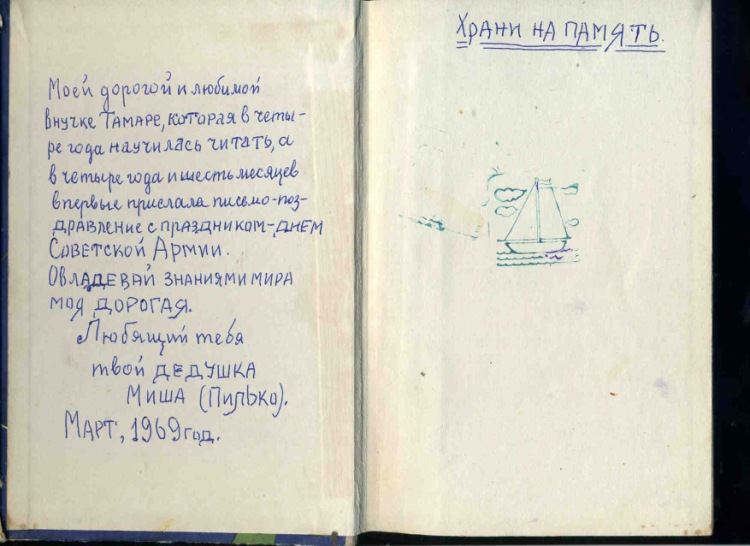 Моей дорогой и любимой
внучке ТАМАРЕ, которая в четы-
ре года научилась читать, а
в четыре года и шесть месяцев
впервые прислала письмо-поз-
дравление с праздником-ДНЕМ
Советской Армии.
Овладевай знаниями мира
моя ДОРОГАЯ.
Любящий тебя
твой ДЕДУШКА
МИША (Пилько).
МАРТ, 1969 год.
ХРАНИ НА ПАМЯТЬ.